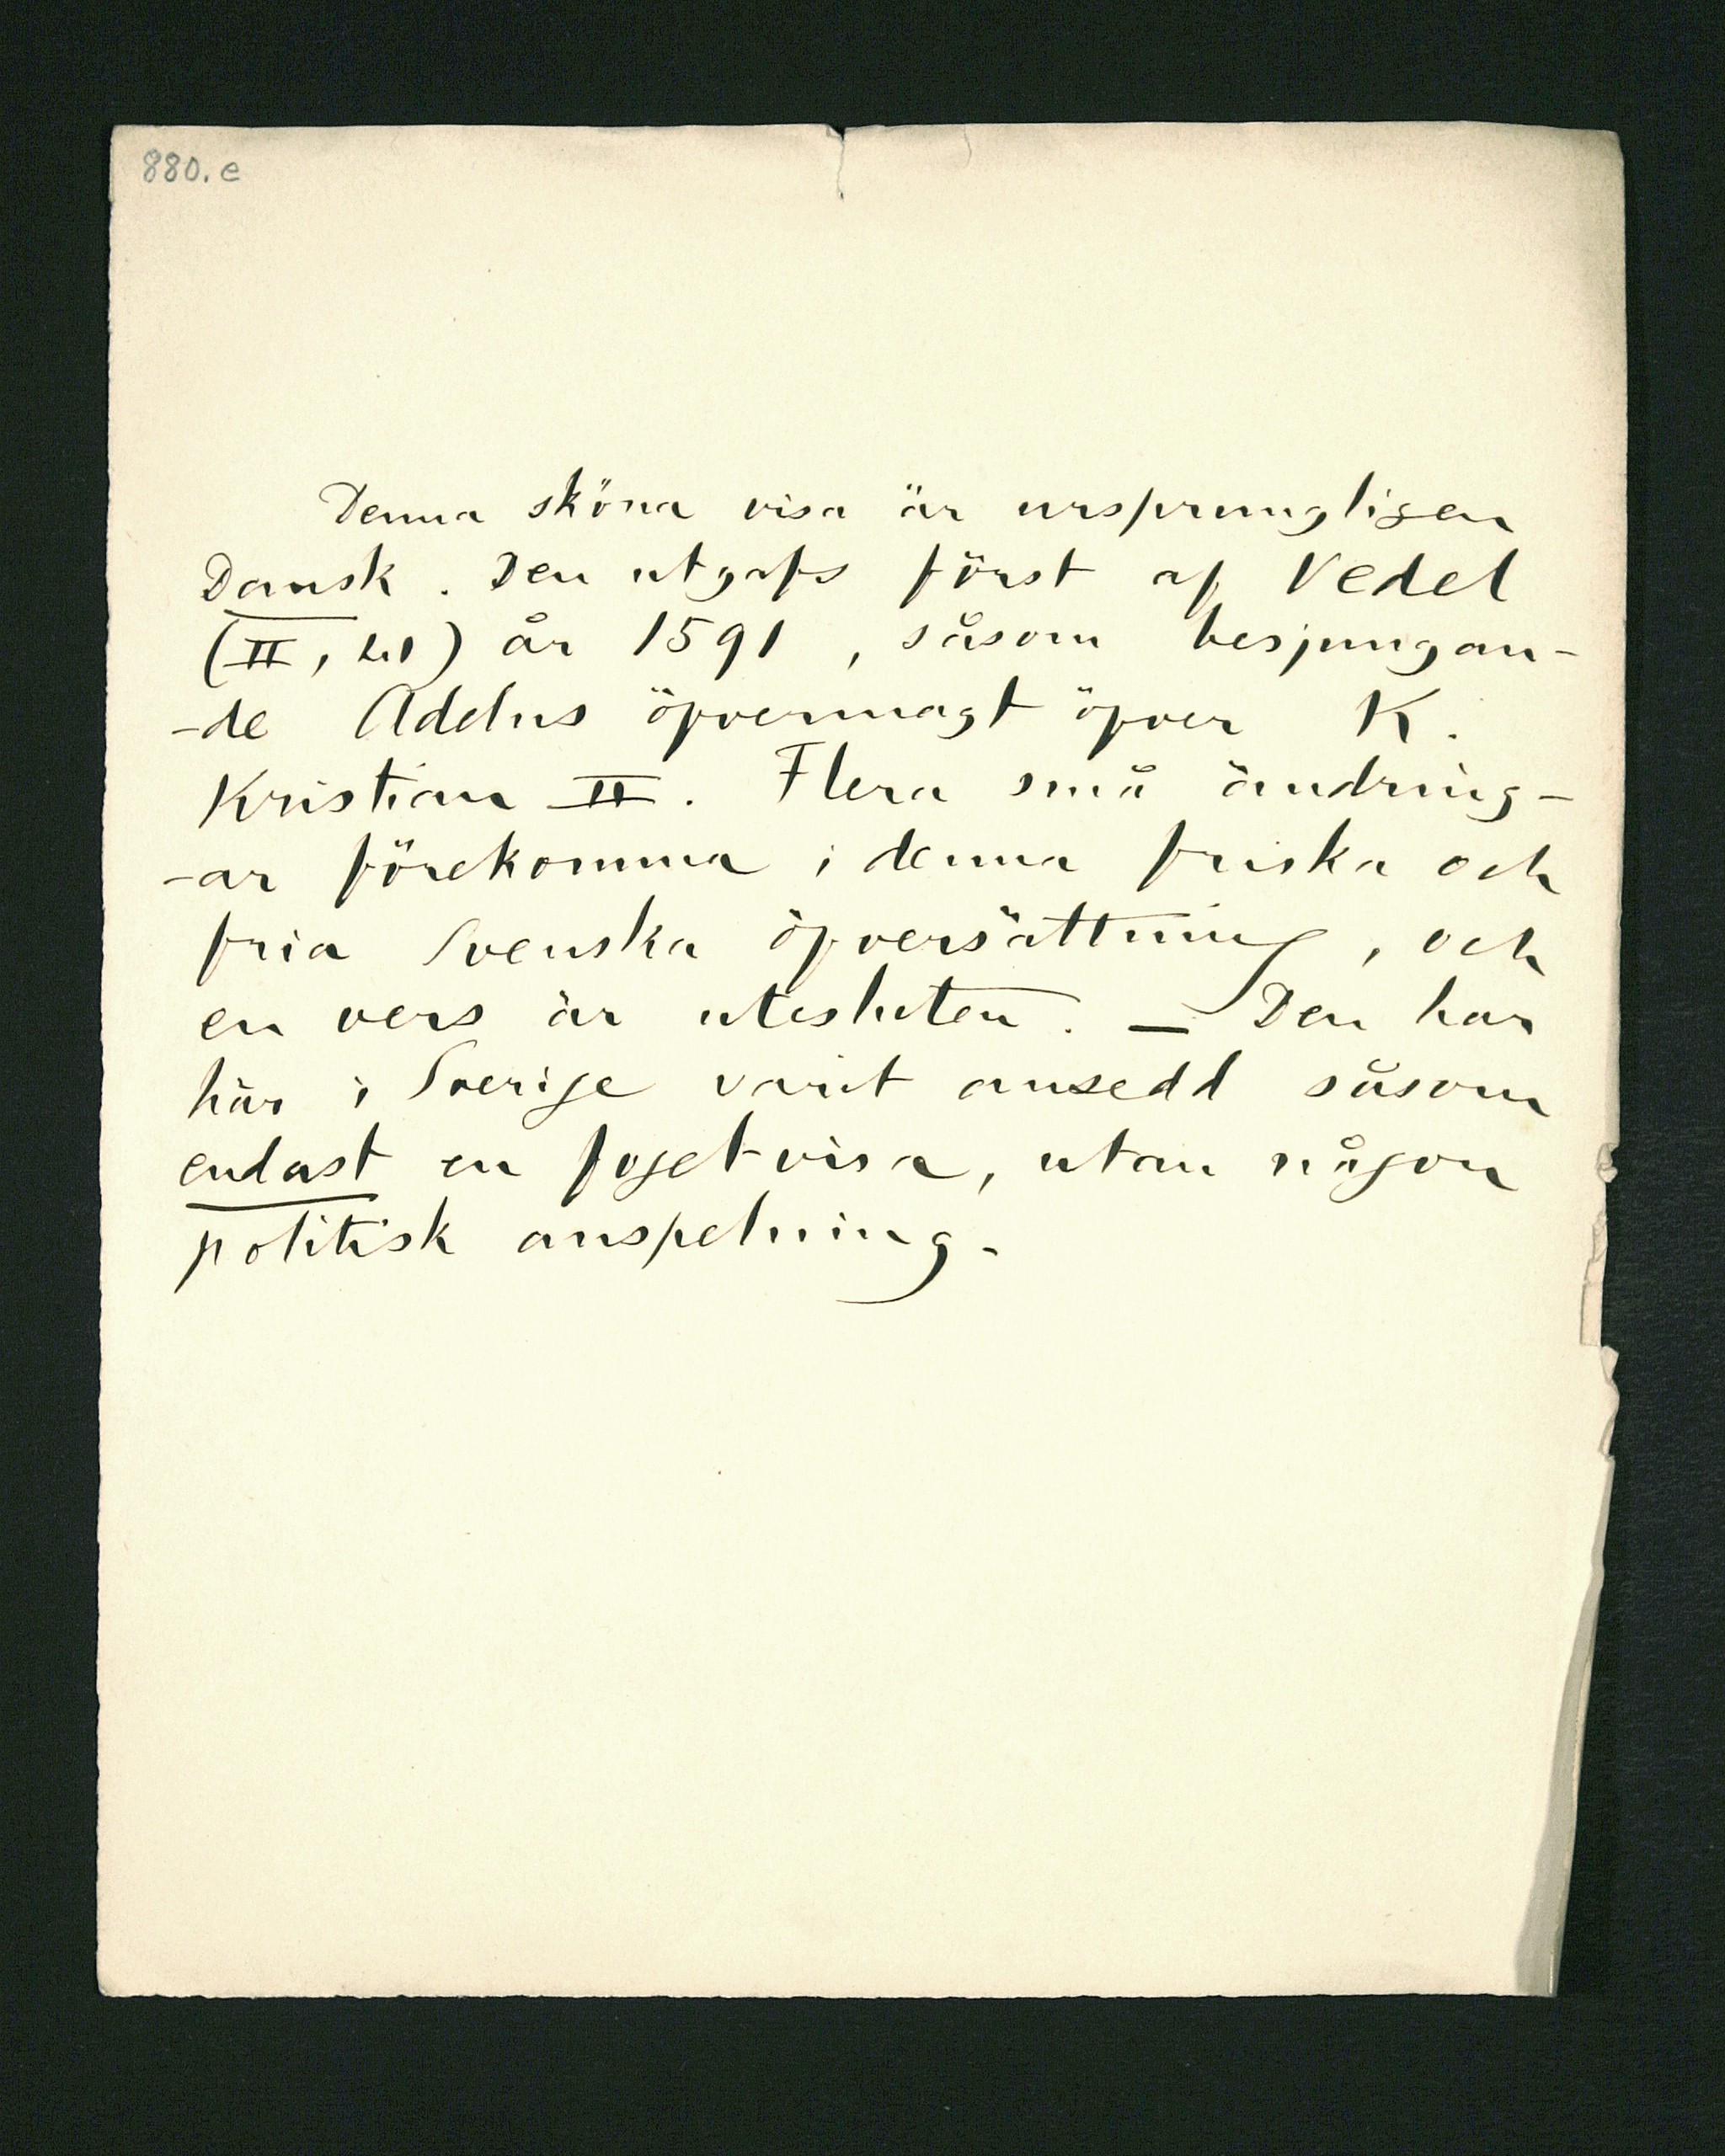 880.e
Denna sköna visa är ursprungligen
Dansk. Den utgafs först af Vedel
(II, ) år 1591, såsom besjungan-
-de Adelns öfvermagt öfver K.
Kristian II. Flera små ändring-
-ar förekomma i denna friska och
fria Svenska öfversättning, och
en vers är utesluten. – Den har
här i Sverige varit ansedd såsom
endast en fogel-visa, utan någon
politisk anspelning.